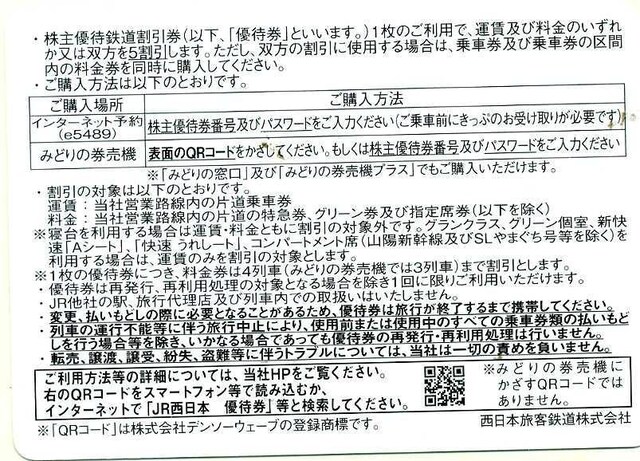 ・株主優待鉄道割引券(以下、「優待券」といいます。)1枚のご利用で、運賃及び料金のいずれ
か又は双方を5割引します。ただし、双方の割引に使用する場合は、乗車券及び乗車券の区間
内の料金券を同時に購入してください。
・ご購入方法は以下のとおりです。
ご購入場所 ご購入方法
インターネット予約
(e5489)
株主優待券番号及びパスワードをご入力ください(ご乗車前にきっぷのお受け取りが必要です)
みどりの券売機 表面のQRコードをかざしてください。もしくは株主優待券番号及びパスワードをご入力ください。
※「みどりの窓口」及び「みどりの券売機プラス」でもご購入いただけます。
・割引の対象は以下のとおりです。
運賃：当社営業路線内の片道乗車券
料金：当社営業路線内の片道の特急券、グリーン券及び指定席券(以下を除く)
※寝台を利用する場合は運賃・料金ともに割引の対象外です。グランクラス、グリーン個室、新快
速「Aシート」、「快速 うれしート」、コンパートメント席(山陽新幹線及びSLやまぐち号等を除く)を
利用する場合は、運賃のみを割引の対象とします。
※1枚の優待券につき、料金券は4列車(みどりの券売機では3列車)まで割引とします。
・優待券は再発行、再利用処理の対象となる場合を除き1回に限りご利用いただけます。
・JR他社の駅、旅行代理店及び列車内での取扱いはいたしません。
・変更、払いもどしの際に必要となることがあるため、優待券は旅行が終了するまで携帯してください。
・列車の運行不能等に伴う旅行中止により、使用前または使用中のすべての乗車券類の払いもど
しを行う場合等を除き、いかなる場合であっても優待券の再発行・再利用処理は行いません。
・転売、譲渡、譲受、紛失、盗難等に伴うトラブルについては、当社は一切の責めを負いません。
ご利用方法等の詳細については、当社HPをご覧ください。
右のQRコードをスマートフォン等で読み込むか、
インターネットで「JR西日本 優待券」等と検索してください。
※みどりの券売機に
かざすQRコードでは
ありません。
※「QRコード」は株式会社デンソーウェーブの登録商標です。
西日本旅客鉄道株式会社